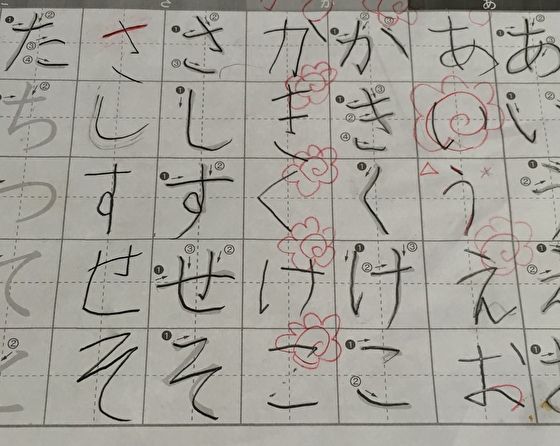 あいうえお
あいうえお
かきくけこ
かきくけこ
さしすせそ
さしすせそ
たちつてと